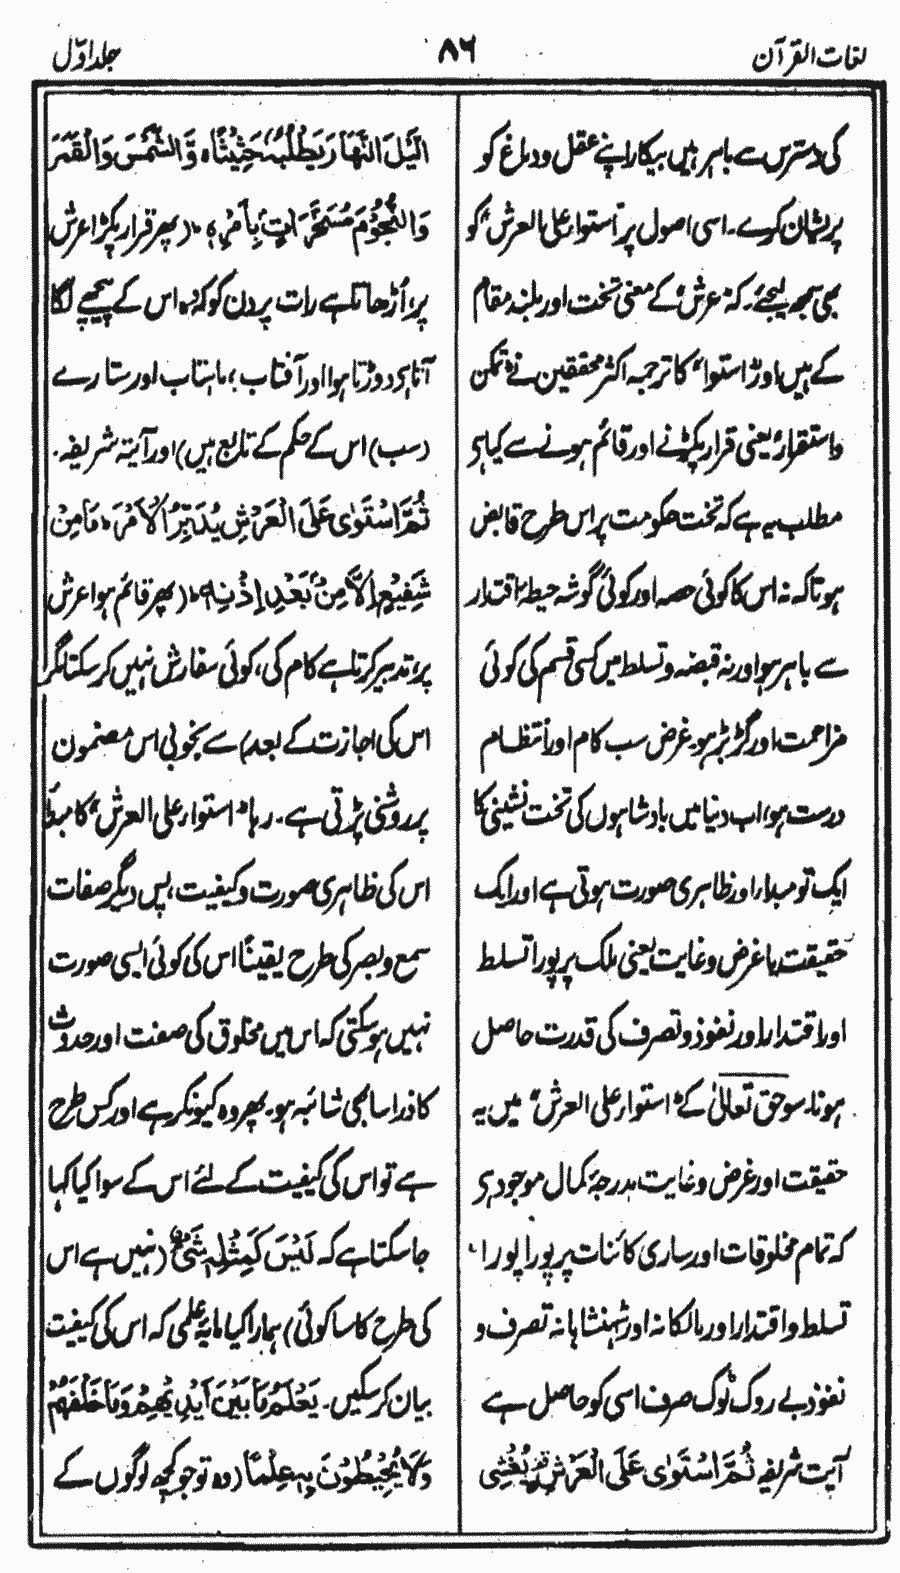 لغات القرآن
۸۶
جلد اوّل
کی دسترس سے باہر ہیں بیکار اپنے عقل و دماغ کو
پریشان کرے۔ اسی اصول پر "استوار علی العرش" کو
بھی سمجھ لیجئے۔ کہ "عرش" کے معنی تخت اور بلند مقام
کے ہیں اور "استوا" کا ترجمہ اکثر محققین نے "تمکن
و استقرار" یعنی قرار پکڑنے اور قائم ہونے سے کیا ہی
مطلب یہ ہے کہ تخت حکومت پر اس طرح قابض
ہونا کہ نہ اس کا کوئی حصہ اور کوئی گوشہ حیطۂ اقتدار
سے باہر ہو اور نہ قبضہ و تسلط میں کسی قسم کی کوئی
مزاحمت اور گڑبڑ ہو۔ غرض سب کام اور انتظام
درست ہو، اب دنیا میں بادشاہوں کی تخت نشینی کا
ایک تو مبداء اور ظاہری صورت ہوتی ہے اور ایک
حقیقت یا غرض و غایت یعنی ملک پر پورا تسلط
اور اقتدار اور نفوذ و تصرف کی قدرت حاصل
ہونا۔ سو حق تعالیٰ کے "استوار علی العرش" میں یہ
حقیقت اور غرض و غایت بدرجۂ کمال موجود ہی
کہ تمام مخلوقات اور ساری کائنات پر پورا پورا
تسلط و اقتدار اور مالکانہ اور شہنشاہانہ تصرف و
نفوذ بے روک ٹوک صرف اسی کو حاصل ہے
آیت شریفہ ثُمَّ اسْتَوٰى عَلَى الْعَرْشِ يُغْشِى
الَّيْلَ النَّهَارَ يَطْلُبُهٗ حَثِيْثًا، وَّالشَّمْسَ وَالْقَمَرَ
وَالنُّجُوْمَ مُسَخَّرٰتٍ بِاَمْرِهٖ، (پھر قرار پکڑا عرش
پر، اُڑھاتا ہے رات پر دن کو کہ وہ اس کے پیچھے لگا
آتا ہی دوڑتا ہوا اور آفتاب، ماہتاب اور ستارے
(سب) اس کے حکم کے تابع ہیں) اور آیۃ شریفہ۔
ثُمَّ اسْتَوٰى عَلَى الْعَرْشِ يُدَبِّرُ الْاَمْرَ، مَا مِنْ
شَفِيْعٍ اِلَّا مِنْ بَعْدِ اِذْنِهٖ، (پھر قائم ہوا عرش
پر، تدبیر کرتا ہے کام کی، کوئی سفارش نہیں کر سکتا مگر
اس کی اجازت کے بعد) سے بخوبی اس مضمون
پر روشنی پڑتی ہے۔ رہا "استوار علی العرش" کا مبدأ
اس کی ظاہری صورت و کیفیت، پس دیگر صفات
سمع و بصر کی طرح یقیناً اس کی کوئی ایسی صورت
نہیں ہو سکتی کہ اس میں مخلوق کی صفت اور حدوث
کا ذرا سا بھی شائبہ ہو۔ پھر وہ کیونکر ہے اور کس طرح
ہے تو اس کی کیفیت کے لئے اس کے سوا کیا کہا
جا سکتا ہے کہ لَيْسَ كَمِثْلِهٖ شَىْءٌ (نہیں ہے اس
کی طرح کا سا کوئی) ہمارا کیا مایۂ علمی کہ اس کی کیفیت
بیان کر سکیں۔ يَعْلَمُ مَا بَيْنَ اَيْدِيْهِمْ وَمَا خَلْفَهُمْ
وَلَا يُحِيْطُوْنَ بِهٖ عِلْمًا (وہ تو جو کچھ لوگوں کے